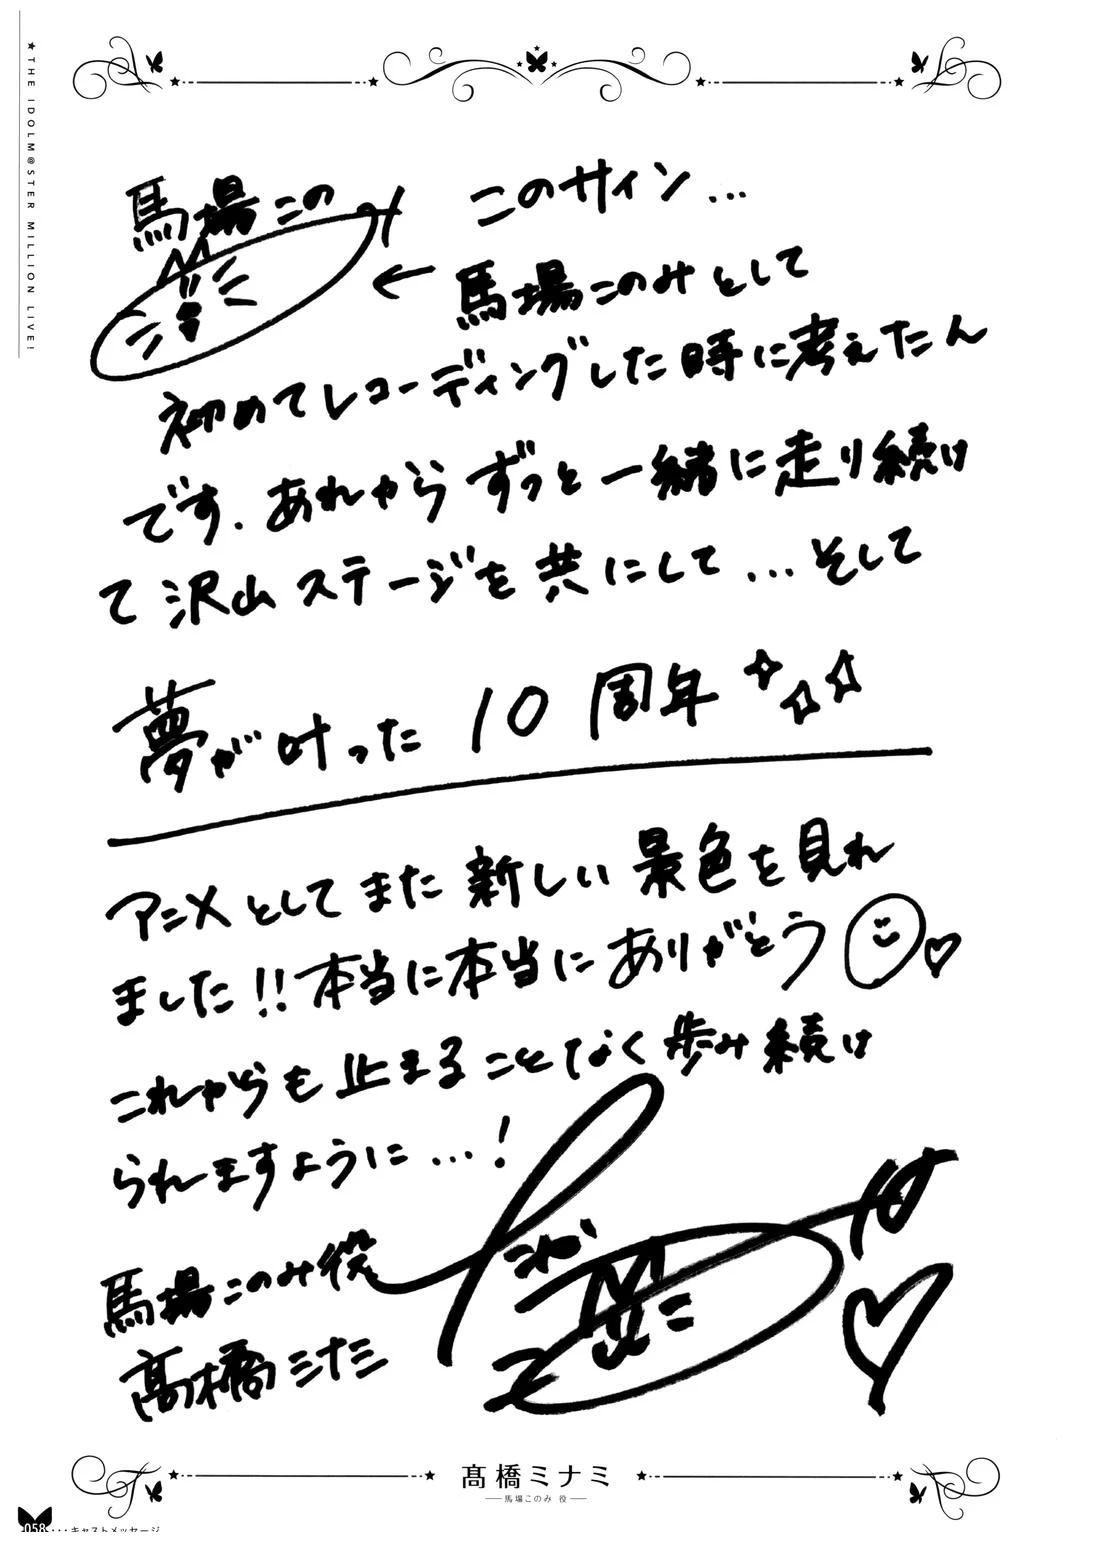 ★THE IDOLM@STER MILLION LIVE!
馬場この
このサイン…
← 馬場このみとして
初めてレコーディングした時に考えたん
です. あれからずっと一緒に走り続け
て沢山ステージを共にして…そして
夢が叶った10周年
アニメとしてまた新しい景色を見れ
ました!!本当に本当にありがとう
これからも止まることなく歩み続け
られますように…!
馬場このみ役
髙橋ミナミ
髙橋ミナミ
馬場このみ 役
058・・・キャストメッセージ